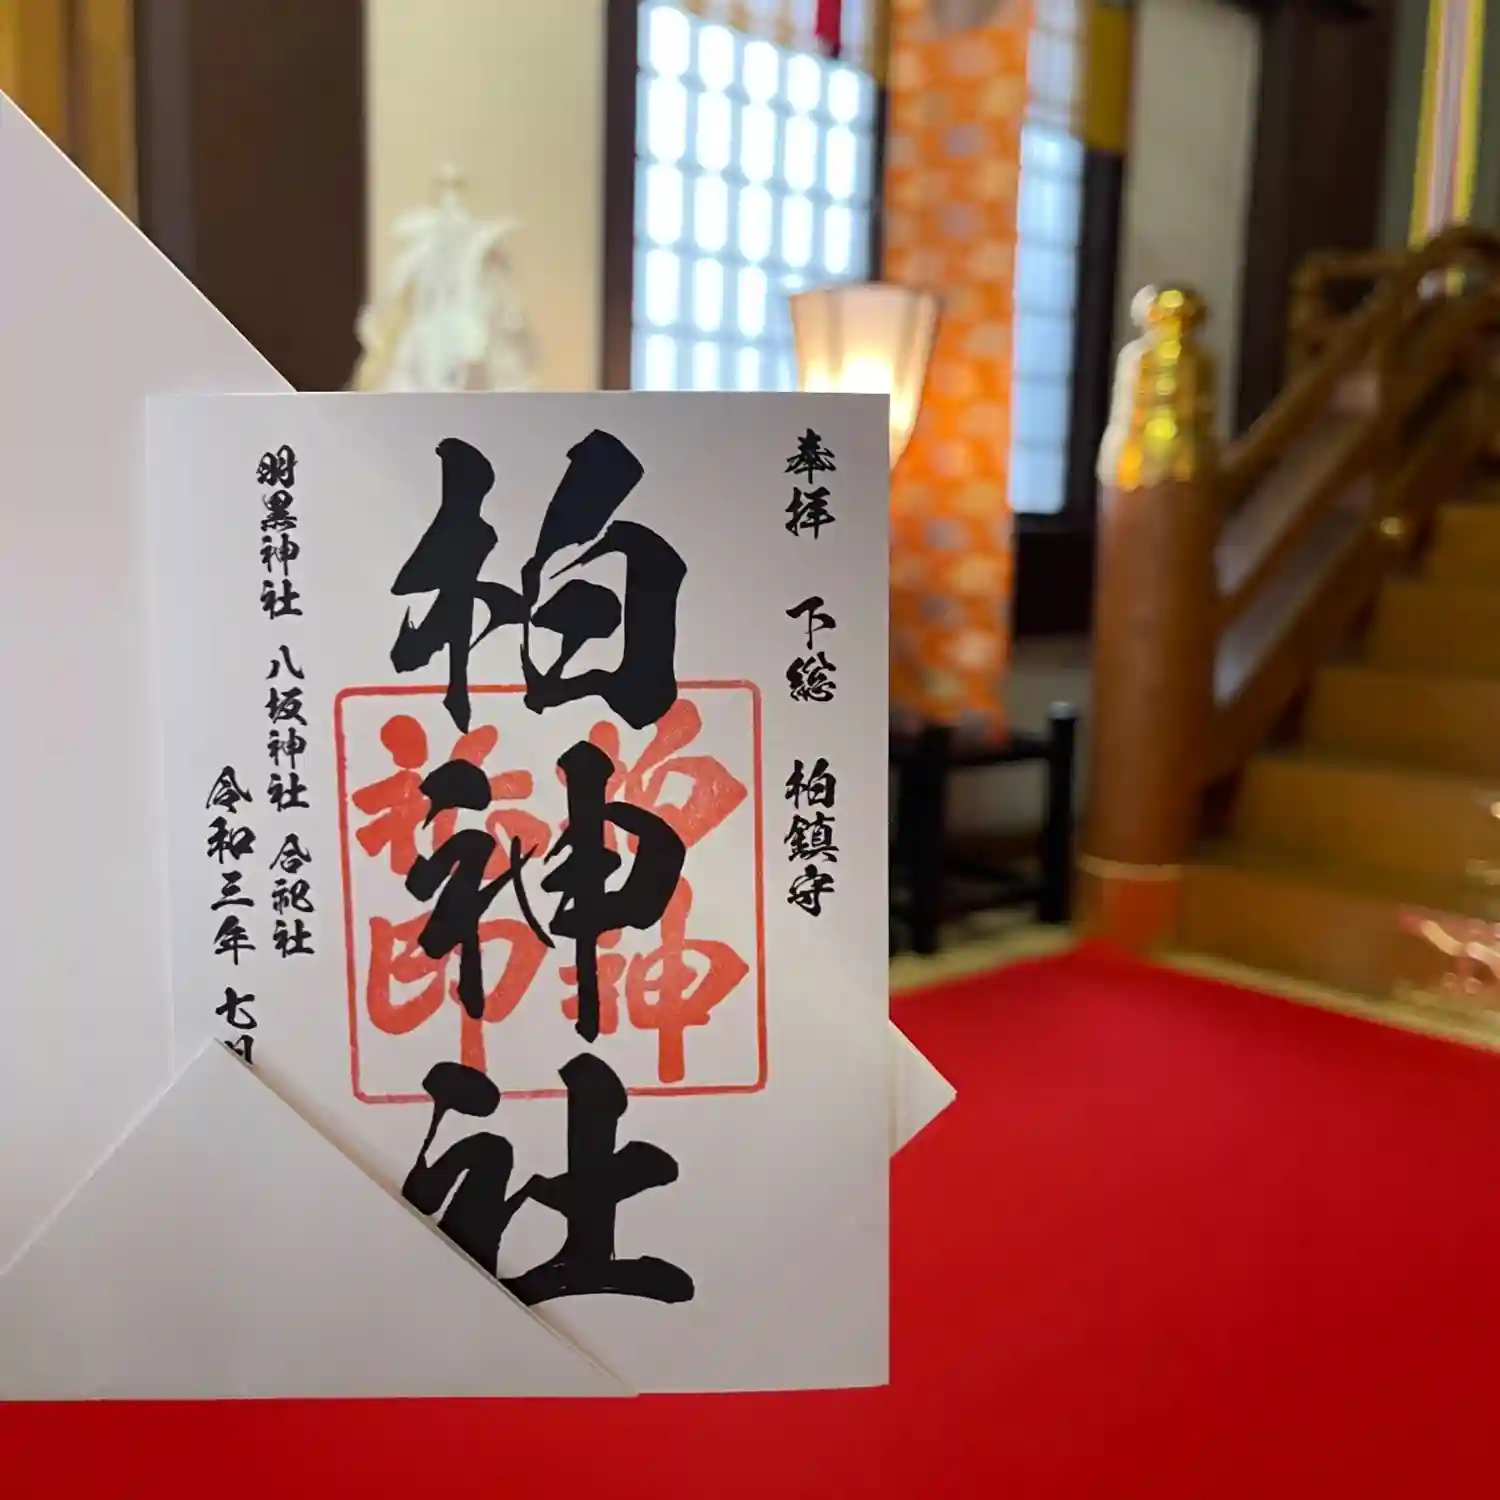 奉拝 下総 柏鎮守
柏神社
柏神
社印
羽黒神社 八坂神社 合祀社
令和三年 七月